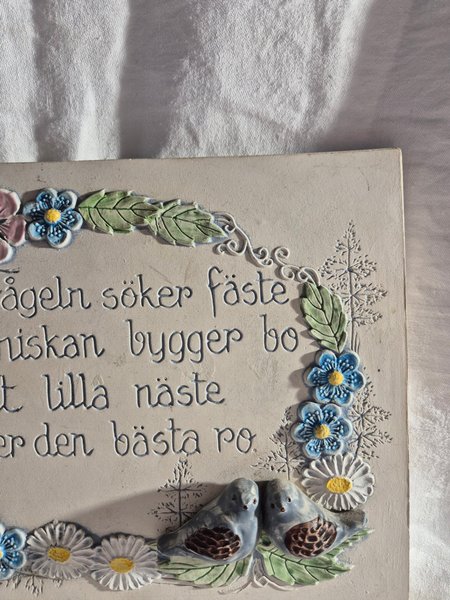 ågeln söker fäste
niskan bygger bo
t lilla näste
er den bästa ro